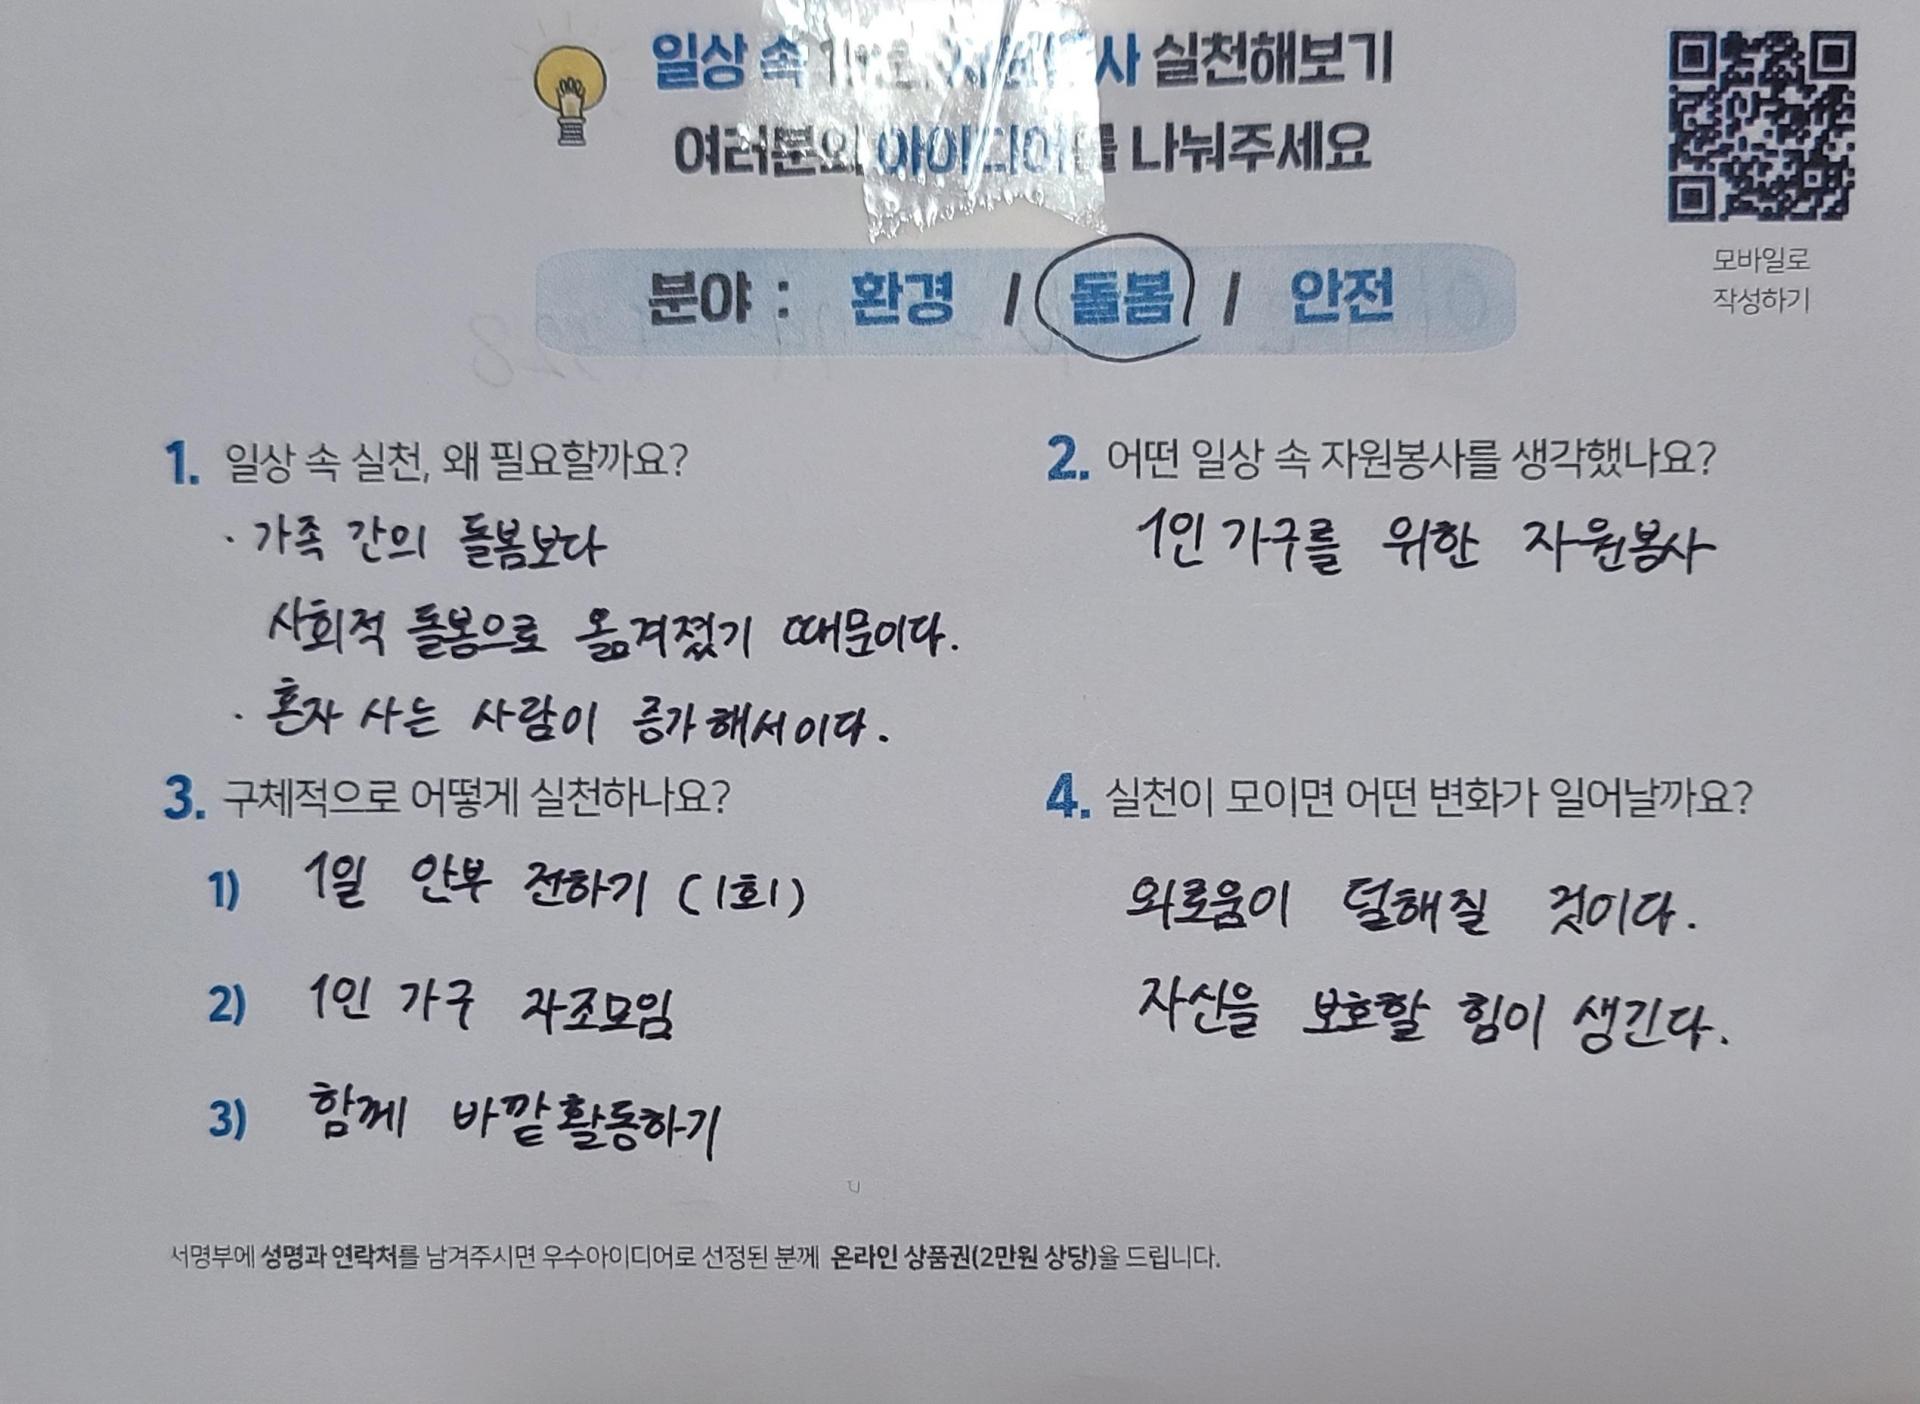 일상 속 실천해보기
여러분의 아이디어를 나눠주세요
모바일로
작성하기
분야 : 환경 / 돌봄 / 안전
1. 일상 속 실천, 왜 필요할까요?
· 가족 간의 돌봄보다
사회적 돌봄으로 옮겨졌기 때문이다.
· 혼자 사는 사람이 증가해서이다.
2. 어떤 일상 속 자원봉사를 생각했나요?
1인 가구를 위한 자원봉사
3. 구체적으로 어떻게 실천하나요?
1) 1일 안부 전하기 (1회)
2) 1인 가구 자조모임
3) 함께 바깥활동하기
4. 실천이 모이면 어떤 변화가 일어날까요?
외로움이 덜해질 것이다.
자신을 보호할 힘이 생긴다.
서명부에 성명과 연락처를 남겨주시면 우수아이디어로 선정된 분께 온라인 상품권(2만원 상당)을 드립니다.